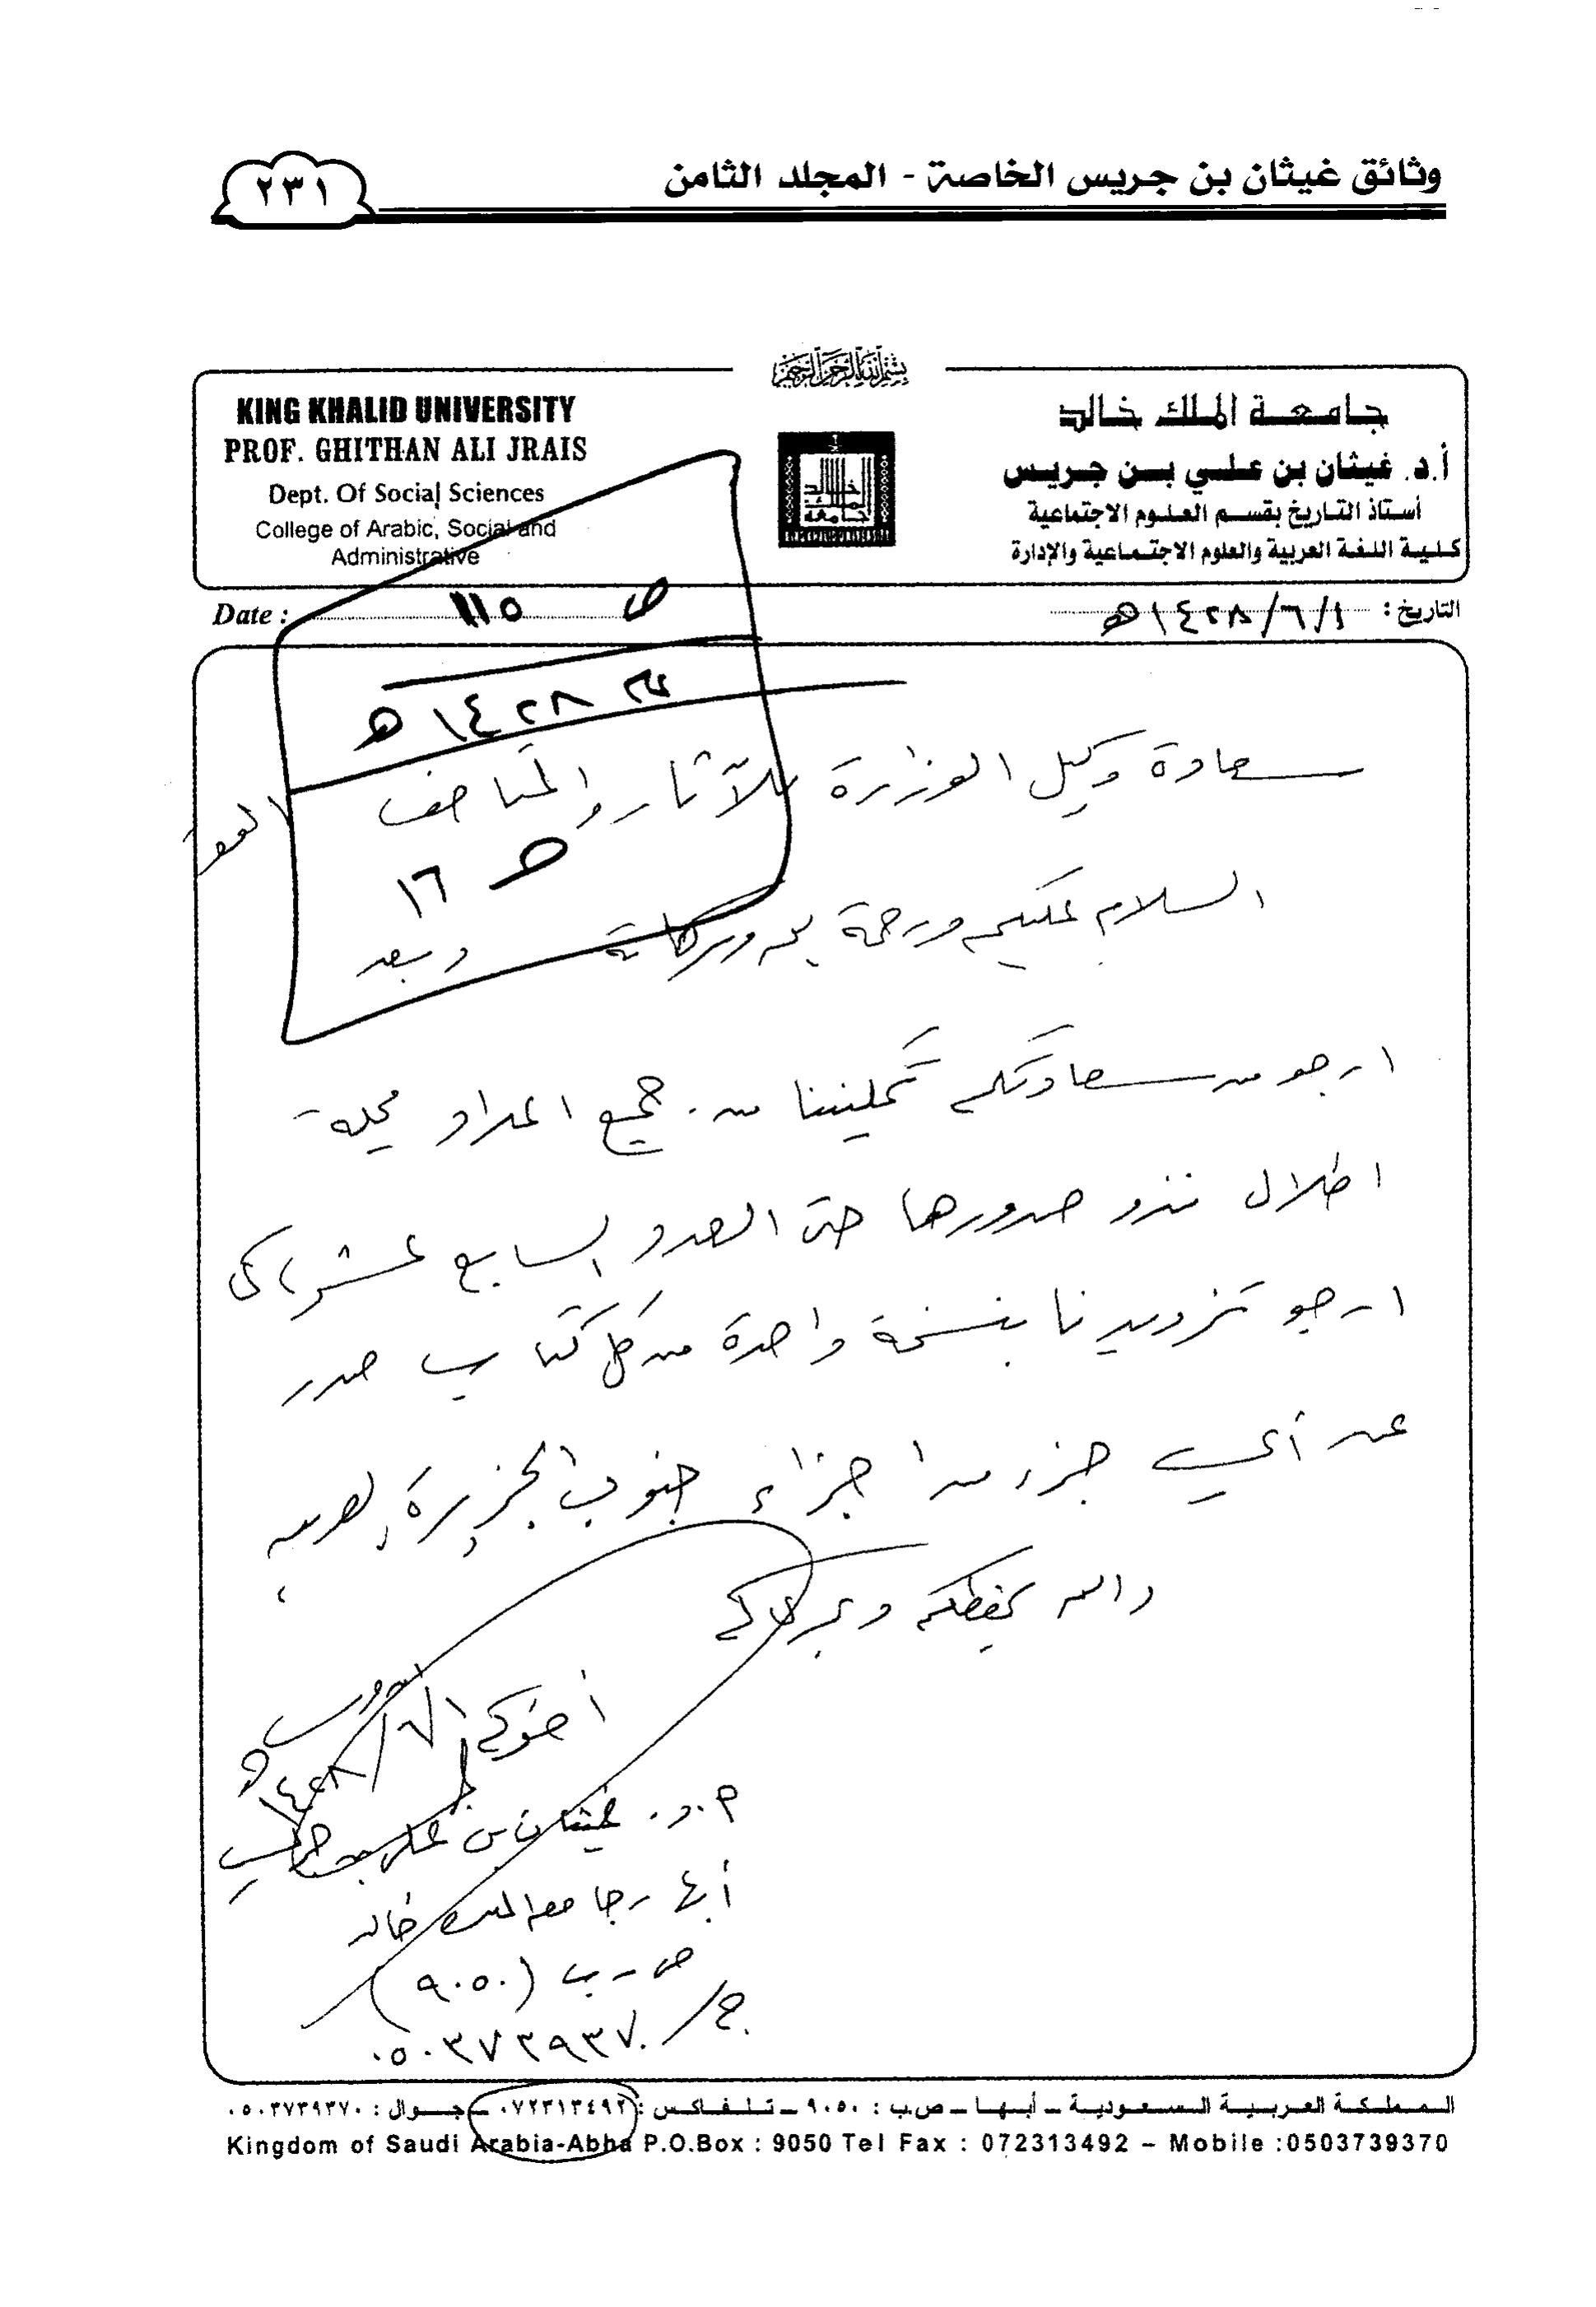 وثائق غيثان بن جريس الخاصة - المجلد الثامن
٢٣١
بسم الله الرحمن الرحيم
جامعة الملك خالد
أ.د. غيثان بن علي بن جريس
أستاذ التاريخ بقسم العلوم الاجتماعية
كلية اللغة العربية والعلوم الاجتماعية والإدارة
KING KHALID UNIVERSITY
PROF. GHITHAN ALI JRAIS
Dept. Of Social Sciences
College of Arabic, Social and
Administrative
جامعة الملك خالد
التاريخ : ١/٦/١٤٢٨هـ
Date :
ص ١١٥
١٤٢٨ هـ
ص ١٦
سعادة وكيل الوزارة للآثار والمتاحف
السلام عليكم ورحمة الله وبركاته وبعد
ارجو من سعادتكم تمكيننا من جميع اعداد مجلة
اطلال منذ صدورها حتى العدد السابع عشر، كما
ارجو تزويدنا بنسخة واحدة من كل كتاب صدر
عن أي جزء من اجزاء جنوب الجزيرة العربية
والله يحفظكم ويرعاكم
أخوكم
أ.د. غيثان بن علي بن جريس
١/٦/١٤٢٨هـ
أبها - جامعة الملك خالد
ص.ب (٩٠٥٠)
ج/ ٠٥٠٣٧٣٩٣٧٠
المملكة العربية السعودية – أبها – ص.ب : ٩٠٥٠ – تلفاكس : ٠٧٢٣١٣٤٩٢ – جوال : ٠٥٠٣٧٣٩٣٧٠
Kingdom of Saudi Arabia-Abha P.O.Box : 9050 Tel Fax : 072313492 – Mobile :0503739370